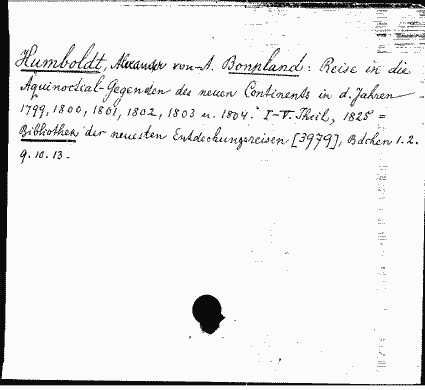 Humboldt, Alexander von - A. Bonpland: Reise in die
Äquinoctial-Gegenden des neuen Continents in d. Jahren
1799, 1800, 1801, 1802, 1803 u. 1804. I-V. Theil, 1825 =
Bibliothek der neuesten Entdeckungsreisen [3979], Bdchen 1. 2.
9. 10. 13.